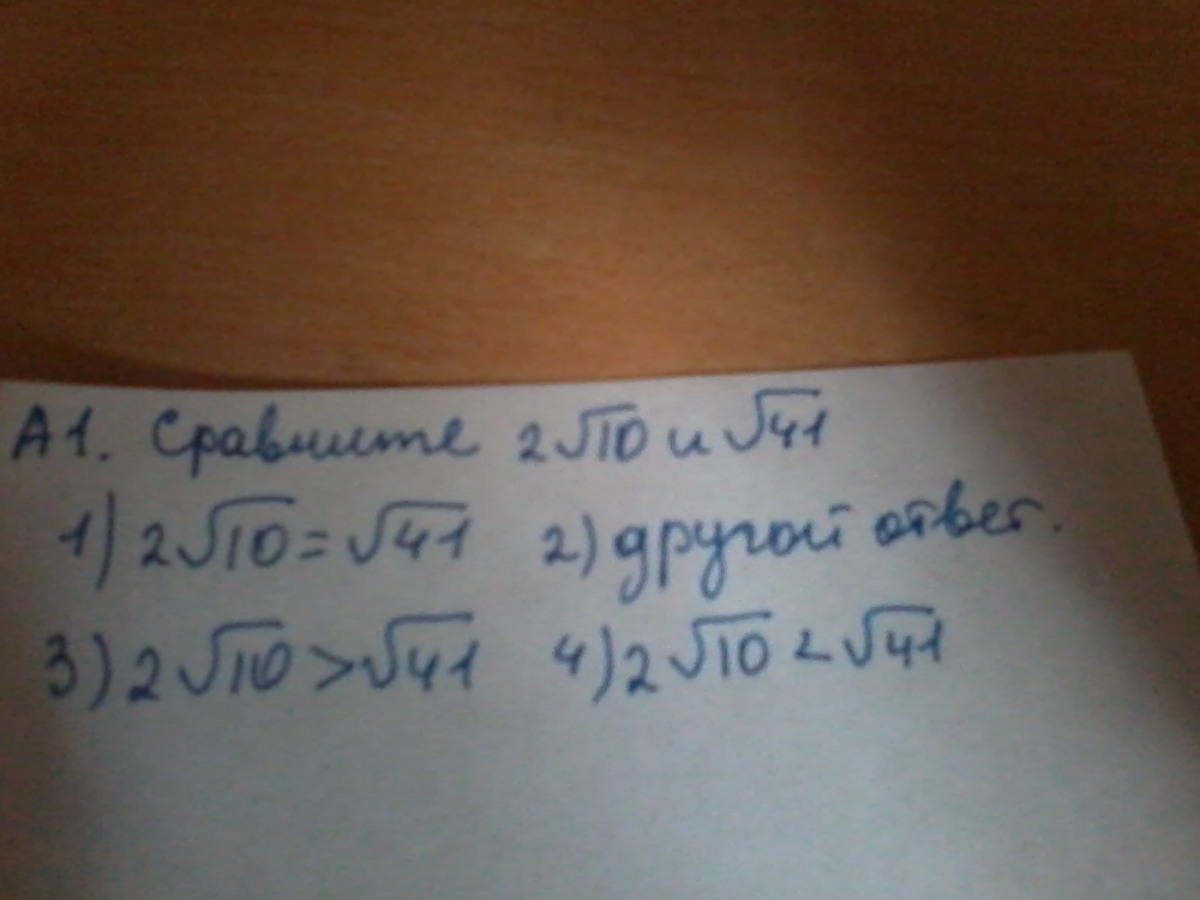 А1. Сравните 2√10 и √41
1) 2√10 = √41 2) другой ответ.
3) 2√10 > √41 4) 2√10 < √41